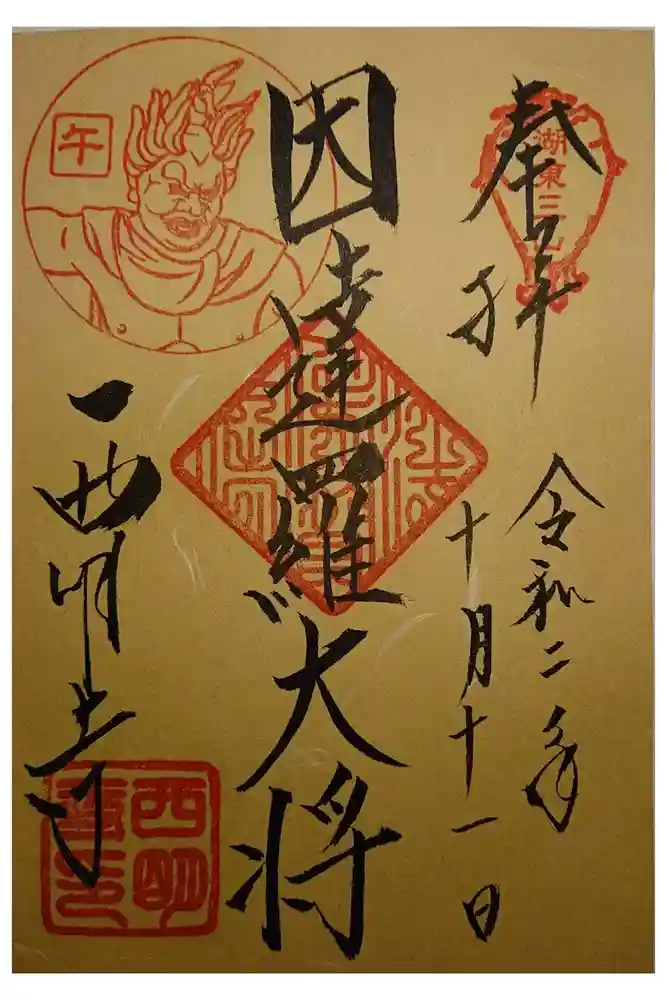 奉拝
令和二年
十月十一日
因達羅大将
午
西明寺
湖東三山
西明
寺印